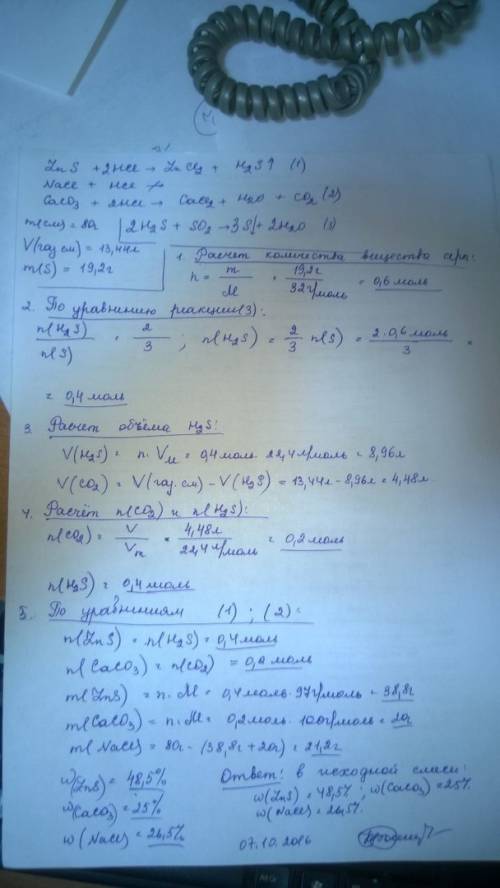 ZnS + 2HCl → ZnCl₂ + H₂S↑ (1)
NaCl + HCl ↛
CaCO₃ + 2HCl → CaCl₂ + H₂O + CO₂ (2)
m(см) = 80г
2H₂S + SO₂ → 3S↓ + 2H₂O (3)
V(газ.см) = 13,44л
m(S) = 19,2г
1. Расчет количества вещества серы:
n = m/M = 19,2г/32г/моль = 0,6 моль
2. По уравнению реакции (3):
n(H₂S)/n(S) = 2/3 ; n(H₂S) = 2/3 n(S) = 2·0,6 моль/3 =
= 0,4 моль
3. Расчет объёма H₂S:
V(H₂S) = n·Vм = 0,4 моль·22,4 л/моль = 8,96л
V(CO₂) = V(газ.см) - V(H₂S) = 13,44л - 8,96л = 4,48л.
4. Расчёт n(CO₂) и n(H₂S):
n(CO₂) = V/Vm = 4,48л/22,4 л/моль = 0,2 моль
n(H₂S) = 0,4 моль
5. По уравнениям (1) ; (2):
n(ZnS) = n(H₂S) = 0,4 моль
n(CaCO₃) = n(CO₂) = 0,2 моль
m(ZnS) = n·M = 0,4 моль·97г/моль = 38,8г
m(CaCO₃) = n·M = 0,2 моль·100г/моль = 20г
m(NaCl) = 80г - (38,8г + 20г) = 21,2г
w(ZnS) = 48,5%
w(CaCO₃) = 25%
w(NaCl) = 26,5%
Ответ: в исходной смеси:
w(ZnS) = 48,5% ; w(CaCO₃) = 25%
w(NaCl) = 26,5%.
07.10.2016